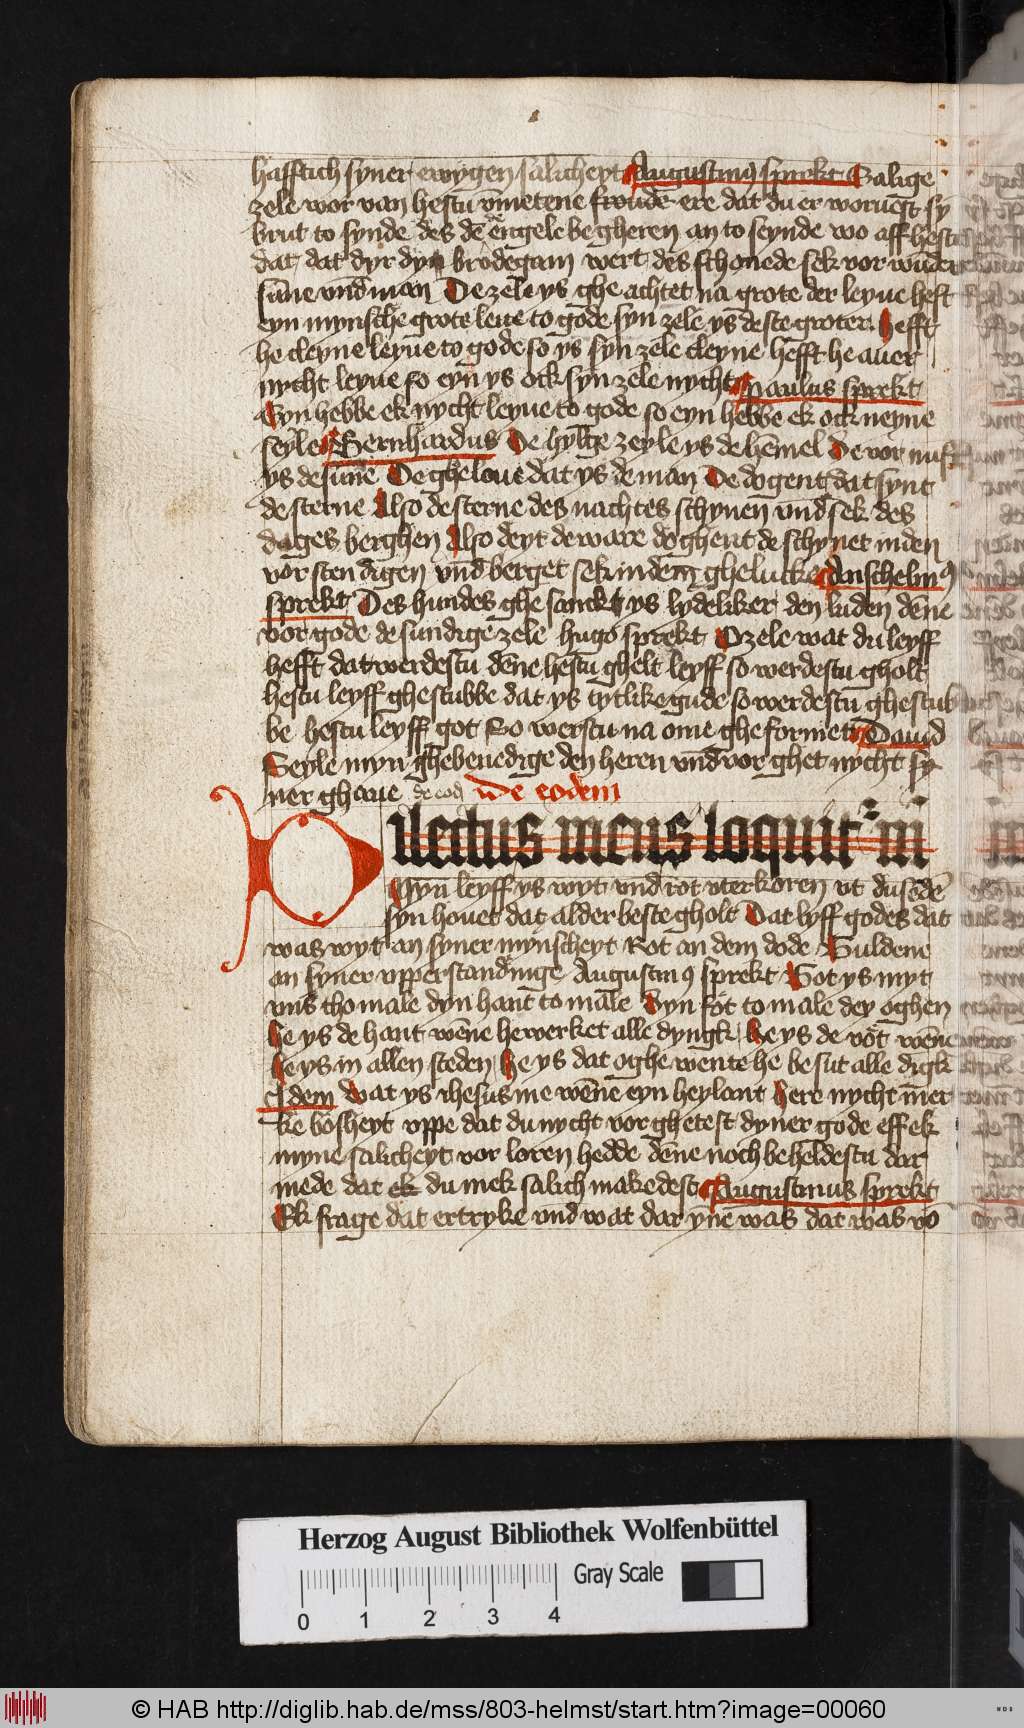 hafftich syner ewygen salicheyt Augustinꝯ sprekt Salige
zele wor van hestu vnmetene froude ere dat du er woruest sy
brut to synde des de engele begheren an to seynde wo aff hestu
dat dat dyr dyn brodegam wert des schonede sek vor wūdert
sūne vnd man De zele ys ghe achtet na grote der leyue heft
eyn mynsche grote leue to gode syn zele ys deste groter hefft
he cleyne leyue to gode so ys syn zele cleyne hefft he auer
nycht leyue so eyn ys ock syn zele nycht paulus sprekt
Eyn hebbe ek nycht leyue to gode so eyn hebbe ek ock neyne
seyle Bernhardus De hylge zeyle ys de hēmel De vor nuft
ys de sūne De ghe loue dat ys de man De dogent dat synt
de sterne Also de sterne des nachtes schynen vnd sek des
dages berghen Also deyt de ware doghent de schynet in den
vor sten digen vnd berget sek in dem ghelucke Anschelmꝯ
sprekt Des hundes ghe stanck ys lydeliker den luden dēne
vor gode de sundige zele hugo sprekt O zele wat du leyff
hefft dat werdestu dēne hestu ghelt leyff so werdestu gholt
hestu leyff ghestubbe dat ys tytlike gude so werdestu ghestub
be hestu leyff got So werstu na ome ghe formet Dauid
Seyle myn ghebenedige den heren vnd vor ghet nycht sy
ner ghaue de eod De eodem
Dilectus meus loquit᷑ m
Myn leyff ys wyt vnd rot vterkoren vt dusēdē
syn houet dat alder beste gholt Dat lyff godes dat
was wyt an syner mynscheyt Rot an dem dode Guldene
an syner vpperstandinge Augustinꝯ sprekt Got ys myt
vns tho male dyn hant to male Eyn fot to male dey oghen
he ys de hant wēne he werket alle dyngk he ys de vot wēne
he ys in allen steden he ys dat oghe wente he besut alle dīgk
Idem Wat ys ihesus me wēne eyn heylant here nycht mer
ke bosheyt vppe dat du nycht vor ghetest dyner gode eff ek
myne salicheyt vor loren hedde dēne noch beheldestu dar
mede dat ek du mek salich makedest Augustinus sprekt
Ek frage dat ertryke vnd wat dar ynē was dat was vō
Herzog August Bibliothek Wolfenbüttel
Gray Scale
0 1 2 3 4
© HAB http://diglib.hab.de/mss/803-helmst/start.htm?image=00060